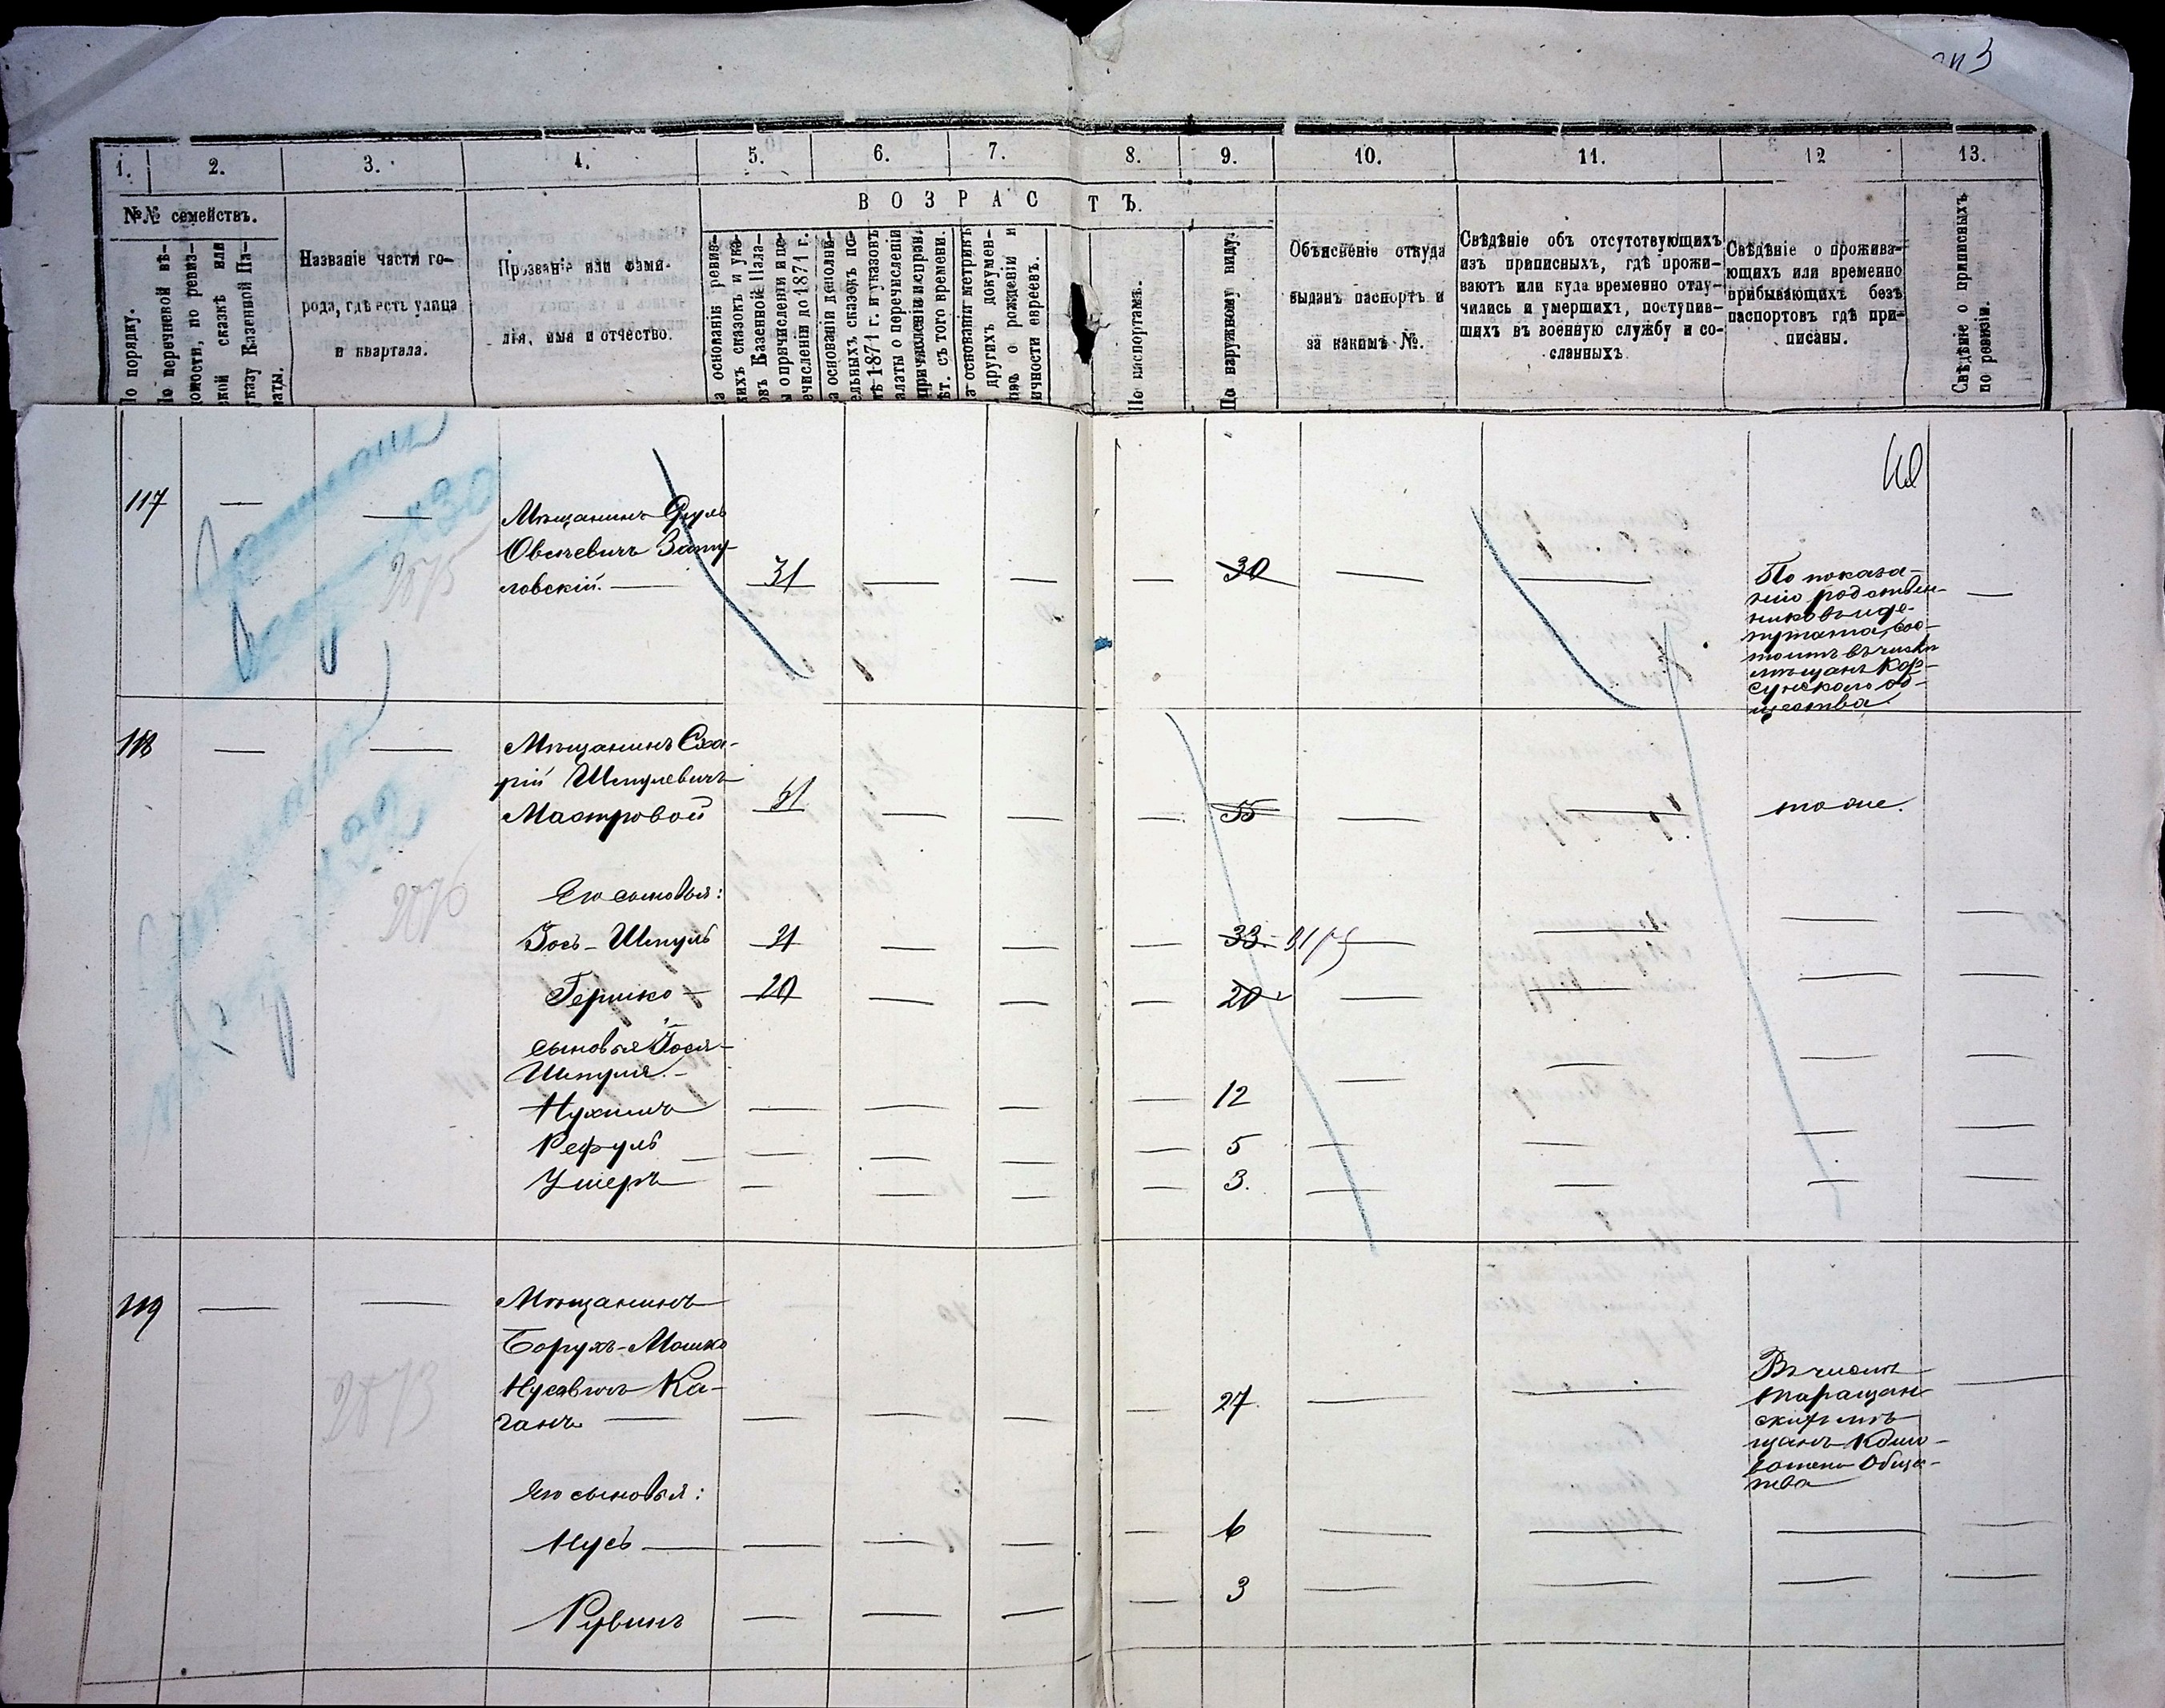 1.
2.
3.
4.
5.
6.
7.
8.
9.
10.
11.
12
13.
№№ семействъ.
ВОЗРАСТЪ.
По порядку.
По перечневой вѣ-
домости, по ревиз-
ской сказкѣ или
указу Казенной Па-
латы.
Названіе части го-
рода, гдѣ есть улица
и квартала.
Прозваніе или фами-
лія, имя и отчество.
На основаніи ревиз-
скихъ сказокъ и ука-
зовъ Казенной Пала-
ты о причисленіи и пе-
речисленіи до 1871 г.
На основаніи дополни-
тельныхъ сказокъ по-
слѣ 1871 г. и указовъ
Палаты о перечисленіи
причисленіи и исправл.
лѣт. съ того времени.
На основаніи метрикъ
и другихъ докумен-
товъ о рожденіи и
личности евреевъ.
По паспортамъ.
По наружному виду.
Объясненіе откуда
выданъ паспортъ и
за какимъ №.
Свѣдѣніе объ отсутствующихъ
изъ приписныхъ, гдѣ прожи-
ваютъ или куда временно отлу-
чились и умершихъ, поступив-
шихъ въ военную службу и со-
сланныхъ
Свѣдѣніе о прожива-
ющихъ или временно
прибывающихъ безъ
паспортовъ гдѣ при-
писаны.
Свѣдѣніе о приписныхъ
по ревизіи.
117
2875
Мѣщанинъ Сруль
Овсѣевичъ Запу-
ловскій.
31
30
По показа-
нію родствен-
никовъ и де-
путата, сос-
тоитъ въ числѣ
мѣщанъ Кор-
сунскаго об-
щества.
118
2876
Мѣщанинъ Сха-
рій Шмулевичъ
Мастровой
51
55
то же.
Его сыновья:
Іось-Шмуль
31
33.
Гершко
20
20
сыновья Іося-
Шмуля.
Нухимъ
12
Рефуль
5
Ушеръ
3.
119
2873
Мѣщанинъ
Борухъ-Мошко
Нусевичъ Ка-
ганъ
27.
Въ числѣ
таращан-
скихъ мѣ-
щанъ
Общес-
тва
Его сыновья:
Нусь
6
Рувинъ
3